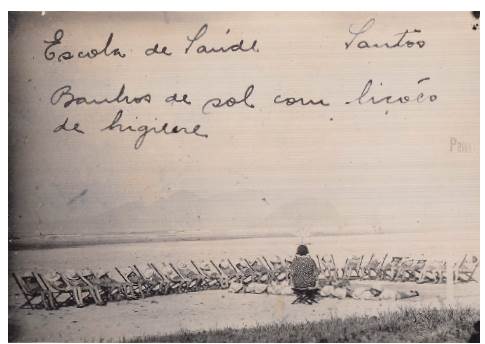 Escola de Saúde Santos
Banhos de sol com lições
de higiene